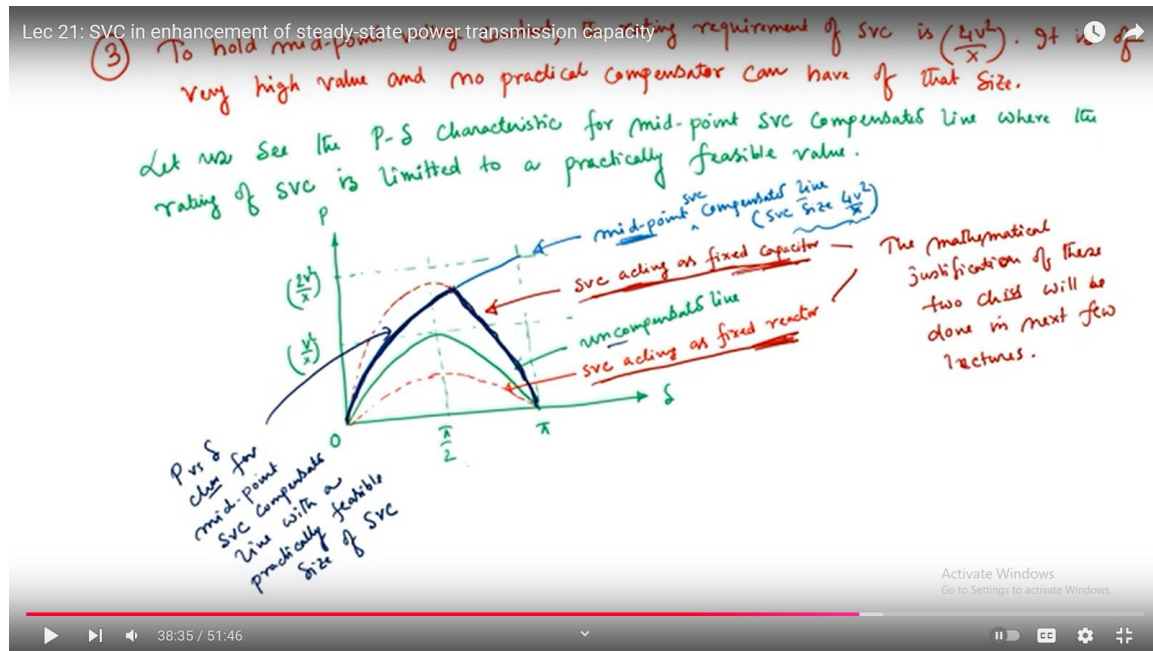 Lec 21: SVC in enhancement of steady-state power transmission capacity
③ To hold mid-point rating requirement of SVC is (4V²/X). It is of
very high value and no practical compensator can have of that size.
Let us see the P-δ characteristic for mid-point SVC compensated line where the
rating of SVC is limitted to a practically feasible value.
P
mid-point SVC compensated line
(SVC size 4V²/X)
(2V²/X)
SVC acting as fixed capacitor
The mathematical
justification of these
two chrs will be
done in next few
lectures.
(V²/X)
uncompensated line
SVC acting as fixed reactor
δ
0
π/2
π
P vs δ
chrs for
mid-point
SVC compensate
line with a
practically feasible
size of SVC
Activate Windows
Go to Settings to activate Windows.
38:35 / 51:46
CC